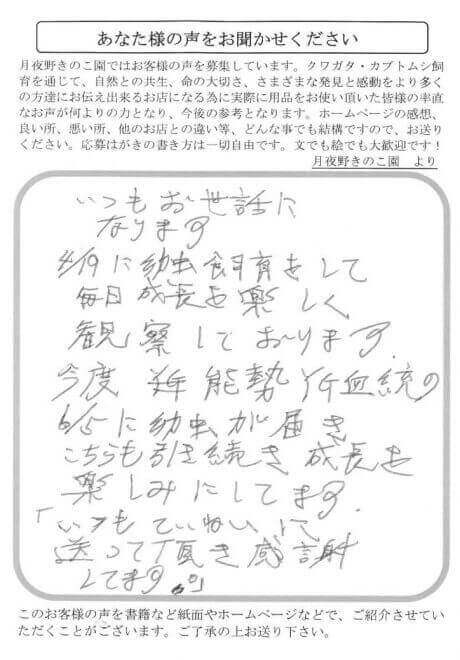 あなた様の声をお聞かせください
月夜野きのこ園ではお客様の声を募集しています。クワガタ・カブトムシ飼
育を通じて、自然との共生、命の大切さ、さまざまな発見と感動をより多く
の方達にお伝え出来るお店になる為に実際に用品をお使い頂いた皆様の率直
なお声が何よりの力となり、今後の参考となります。ホームページの感想、
良い所、悪い所、他のお店との違い等、どんな事でも結構ですので、お送り
ください。応募はがきの書き方は一切自由です。文でも絵でも大歓迎です！
月夜野きのこ園　より
いつもお世話に
なります
4/19に幼虫飼育をして
毎日成長を楽しく
観察しております
今度 能勢YG血統の
6/5に幼虫が届き
こちらも引き続き成長を
楽しみにしてます
「いつもていねいに
送って頂き感謝
してます。」
このお客様の声を書籍など紙面やホームページなどで、ご紹介させてい
ただくことがございます。ご了承の上お送り下さい。